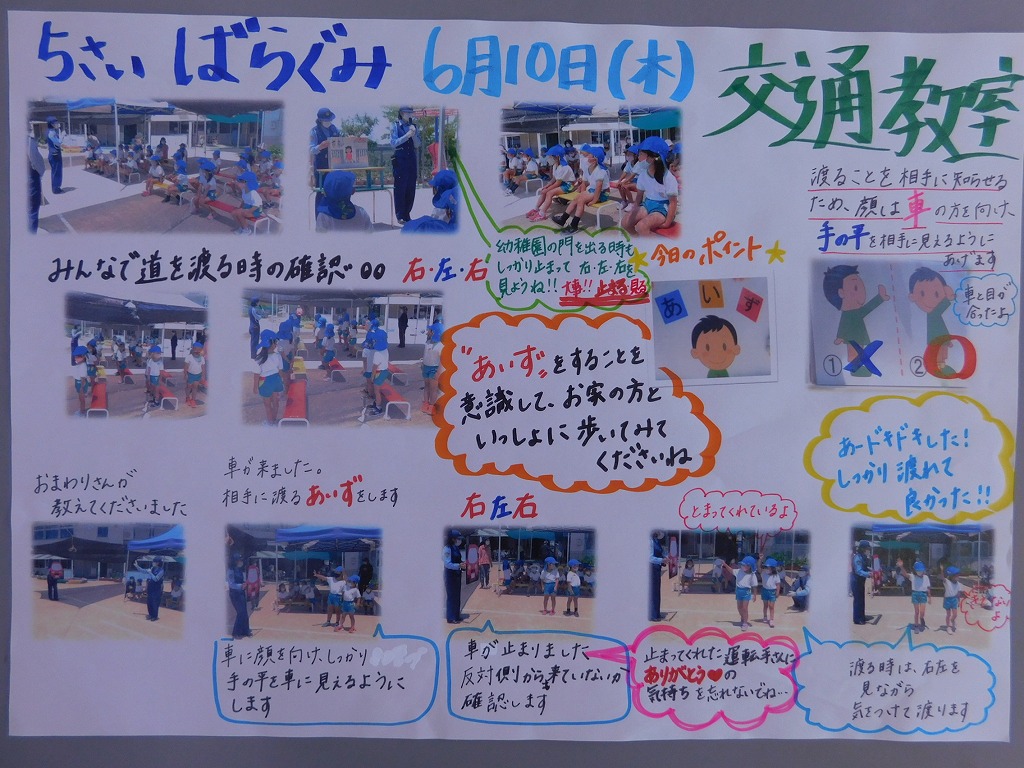 5さい ばらぐみ 6月10日(木)
交通教室
渡ることを相手に知らせる
ため、顔は車の方を向け、
手の平を相手に見えるように
あげます
幼稚園の門を出る時も
しっかり止まって 右・左・右を
見ようね!!
今日のポイント
みんなで道を渡る時の確認 右・左・右
あいず
車と目が
合ったよ
① X ② O
"あいず"をすることを
意識して、お家の方と
いっしょに歩いてみて
くださいね
あードキドキした!
しっかり渡れて
良かった!!
おまわりさんが
教えてくださいました
車が来ました。
相手に渡るあいずをします
右左右
とまってくれているよ
車に顔を向け、しっかり
手の平を車に見えるように
します
車が止まりました
反対側からも来ていないか
確認します
止まってくれた運転手さんに
ありがとう♥の
気持ちを忘れないでね…
渡る時は、右左を
見ながら
気をつけて渡ります